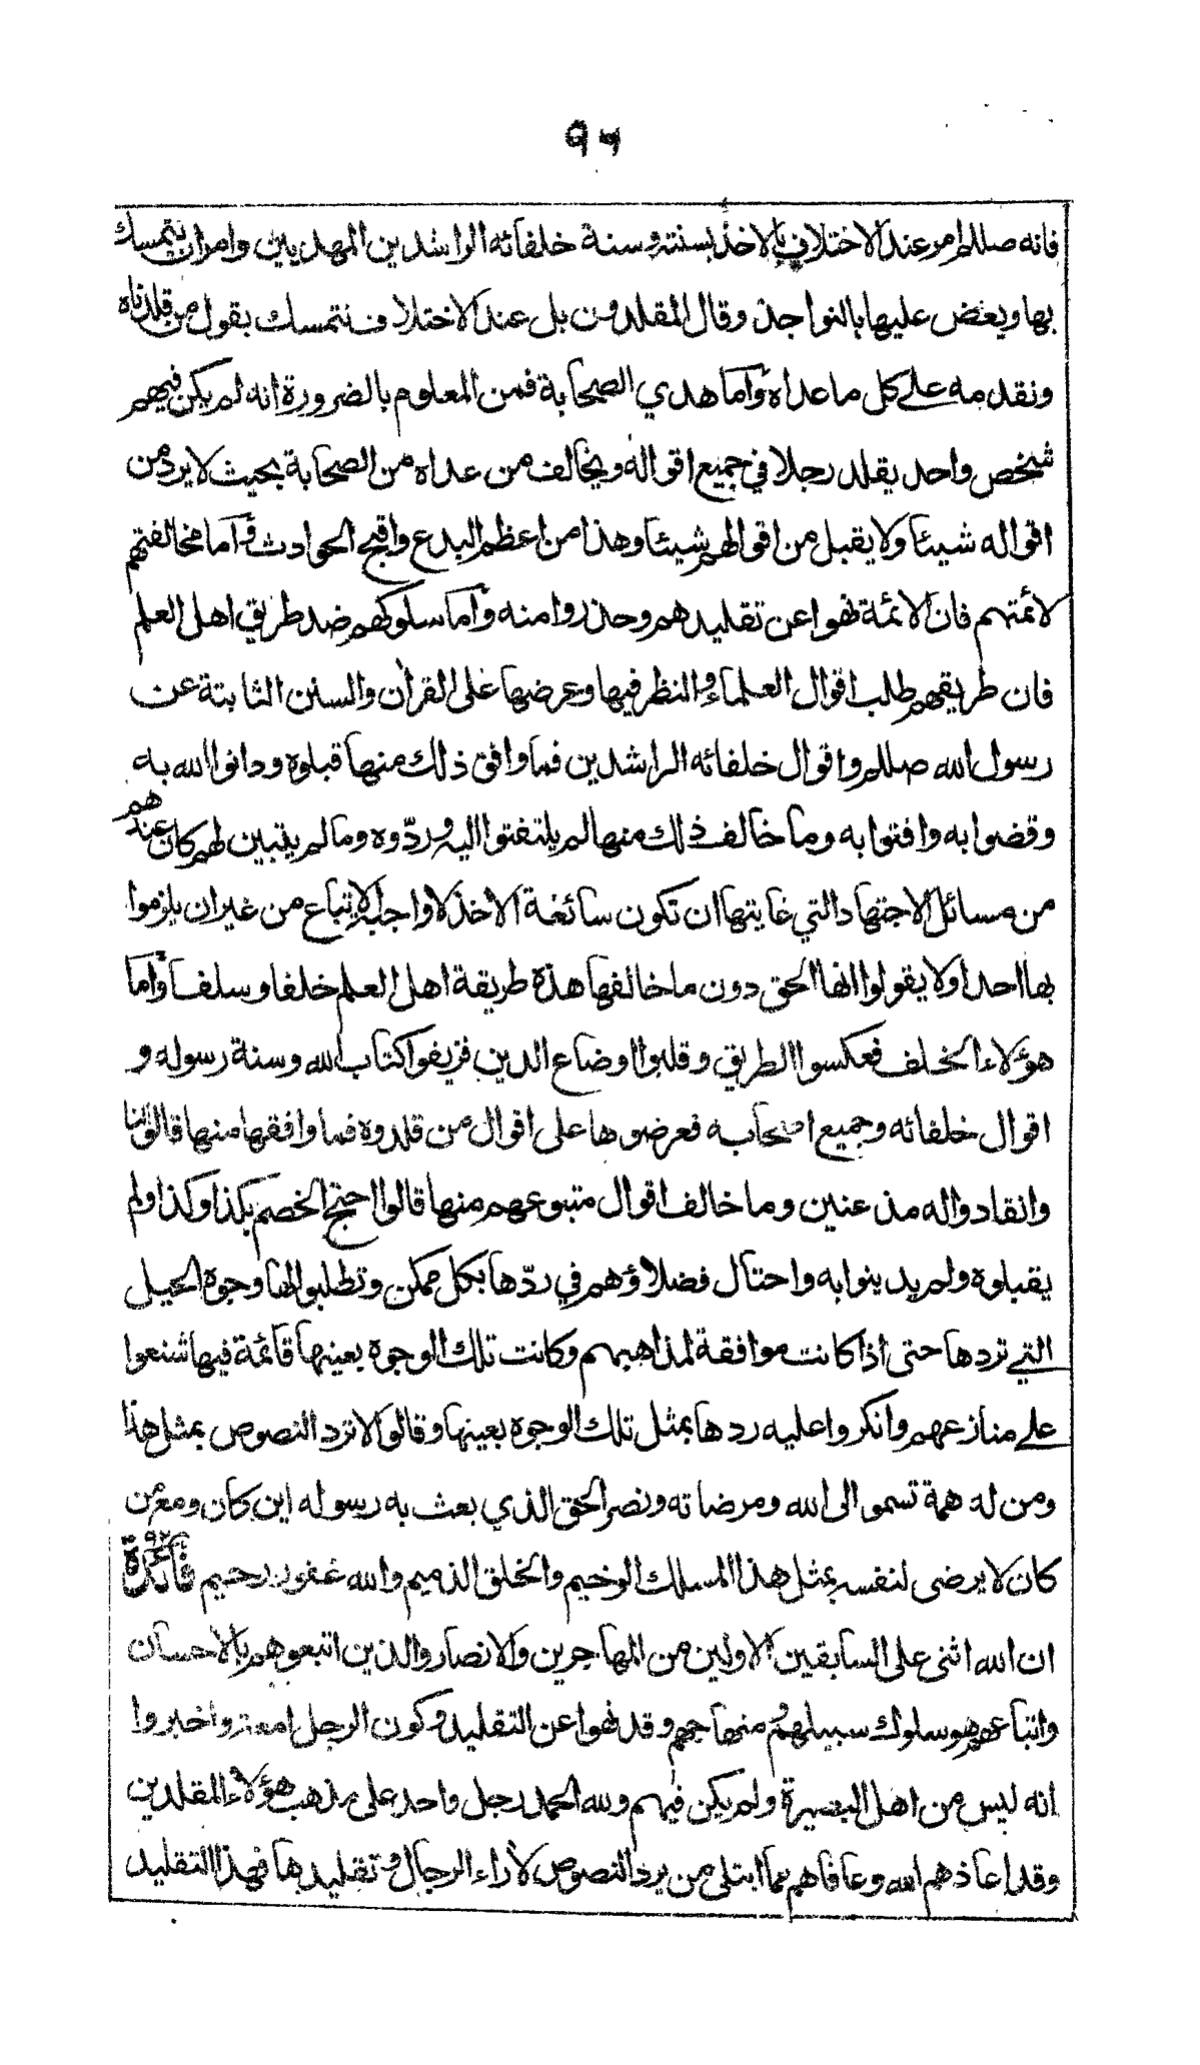 ٩٦
فانه صللم امر عند الاختلاف بالاخذ بسنته وسنة خلفائه الراشدين المهديين وامر ان يتمسك
بها ويعض عليها بالنواجذ وقال المقلدون بل عند الاختلاف نتمسك بقول من قلدناه
ونقدمه على كل ماعداه واما هدي الصحابة فمن المعلوم بالضرورة انه لم يكن فيهم
شخص واحد يقلد رجلا في جميع اقواله ويخالف من عداه من الصحابة بحيث لا يرد من
اقواله شيئا ولا يقبل من اقوالهم شيئا وهذا من اعظم البدع واقبح الحوادث واما مخالفتهم
لائمتهم فان الائمة نهوا عن تقليدهم وحذروا منه واما سلوكهم ضد طريق اهل العلم
فان طريقهم طلب اقوال العلماء والنظر فيها وعرضها على القرأن والسنن الثابتة عن
رسول الله صللم واقوال خلفائه الراشدين فما وافق ذلك منها قبلوه ودانوا الله به
وقضوا به وافتوا به وما خالف ذلك منها لم يلتفتوا اليه وردّوه وما لم يتبين لهم كان عندهم
من مسائل الاجتهاد التي غايتها ان تكون سائغة الاخذ لا واجبة الاتباع من غير ان يلزموا
بها احدا ولا يقولوا انها الحق دون ما خالفها هذه طريقة اهل العلم خلفا وسلفا واما
هؤلاء الخلف فعكسوا الطريق وقلبوا اوضاع الدين فزيفوا كتاب الله وسنة رسوله و
اقوال خلفائه وجميع اصحابه فعرضوها على اقوال من قلدوه فما وافقها منها قالوا لنا
وانقادوا له مذعنين وما خالف اقوال متبوعهم منها قالوا احتج الخصم بكذا وكذا ولم
يقبلوه ولم يدينوا به واحتال فضلاؤهم في ردّها بكل ممكن وتطلبوا لها وجوه الحيل
التي تردها حتى اذا كانت موافقة لمذاهبهم وكانت تلك الوجوه بعينها قائمة فيها شنعوا
على منازعهم وانكروا عليه ردها بمثل تلك الوجوه بعينها وقالوا لا ترد النصوص بمثل هذا
ومن له همة تسمو الى الله ومرضاته ونصر الحق الذي بعث به رسوله اين كان ومع من
كان لا يرضى لنفسه بمثل هذا المسلك الوخيم والخلق الذميم والله غفور رحيم فائدة
ان الله اثنى على السابقين الاولين من المهاجرين والانصار والذين اتبعوهم بالاحسان
واتباعهم هو سلوك سبيلهم ومنهاجهم وقد نهوا عن التقليد وكون الرجل امعة واخبروا
انه ليس من اهل البصيرة ولم يكن فيهم ولله الحمد رجل واحد على مذهب هؤلاء المقلدين
وقد اعاذهم الله وعافاهم مما ابتلى من يرد النصوص لأراء الرجال وتقليدها فهذا التقليد